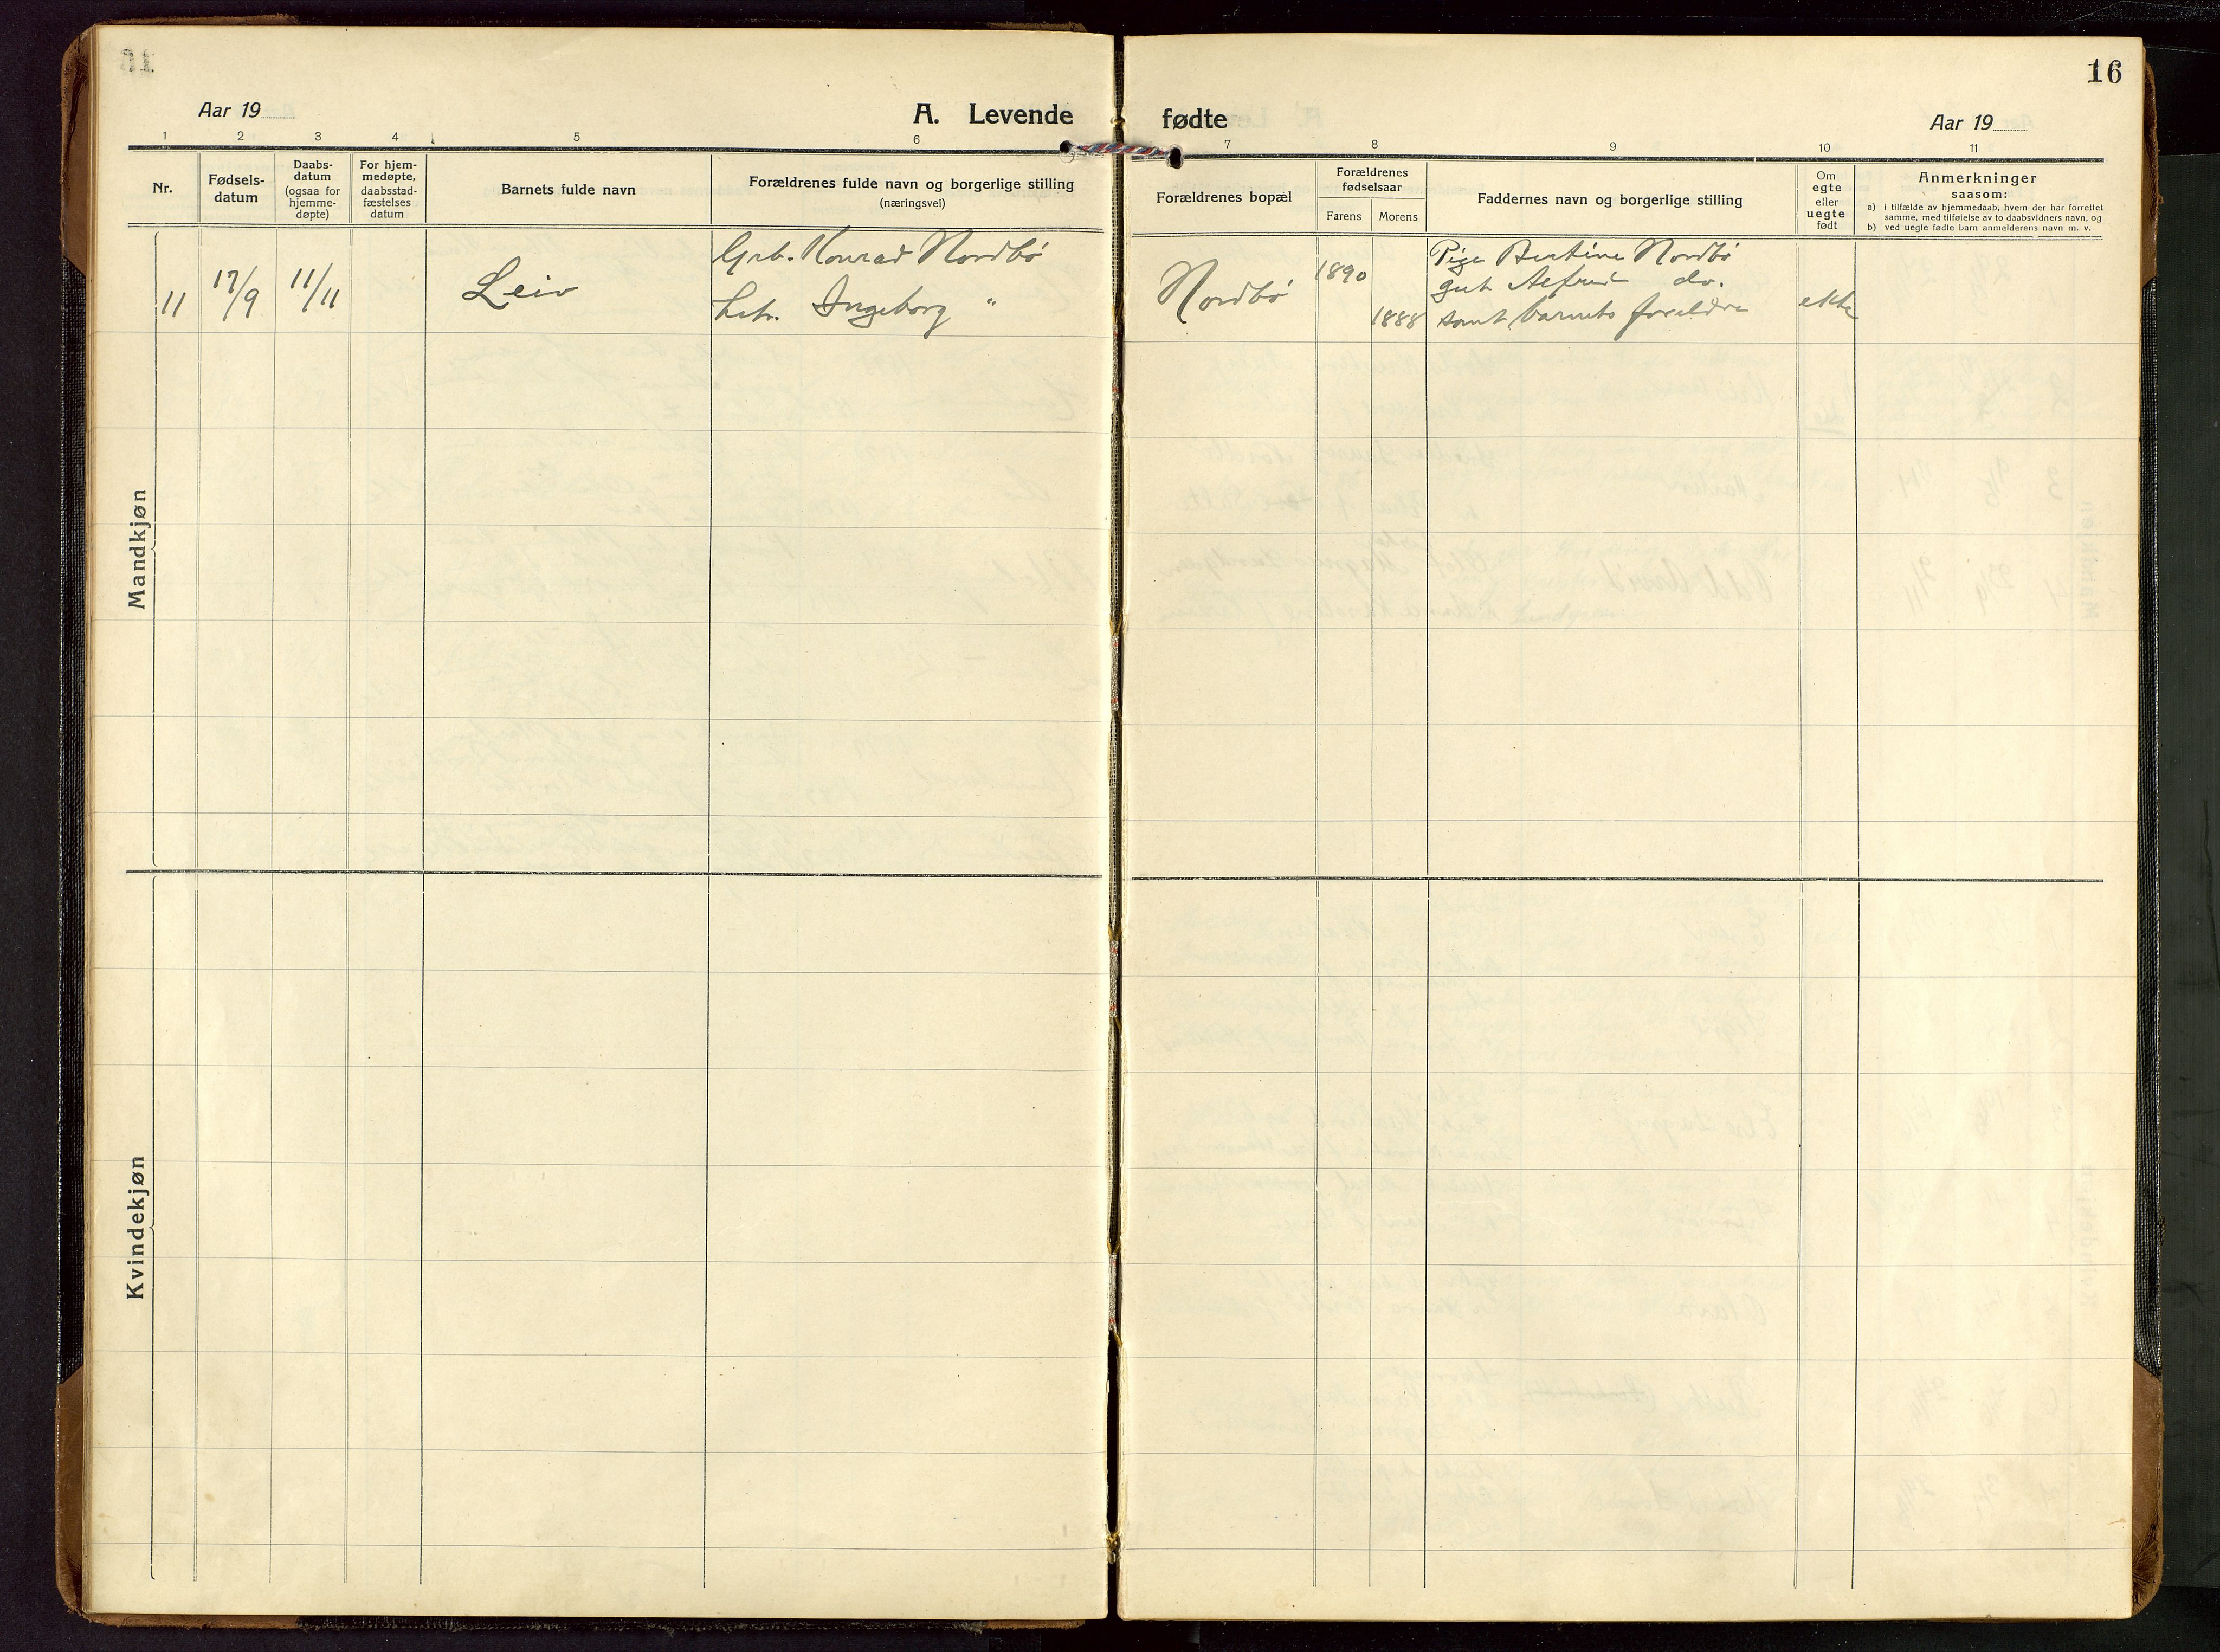 16
Aar 19
A. Levende
fødte
Aar 19
1 2 3 4 5 6 7 8 9 10 11
Nr.
Fødsels-
datum
Daabs-
datum
(ogsaa for
hjemme-
døpte)
For hjem-
medøpte,
daabsstad-
fæstelses
datum
Barnets fulde navn
Forældrenes fulde navn og borgerlige stilling
(næringsvei)
Forældrenes bopæl
Forældrenes
fødselsaar
Farens Morens
Faddernes navn og borgerlige stilling
Om
egte
eller
uegte
født
Anmerkninger
saasom:
a) i tilfælde av hjemmedaab, hvem der har forrettet
samme, med tilføielse av to daabsvidners navn, og
b) ved uegte fødte barn anmelderens navn m. v.
Mandkjøn
11
17/9
11/11
Leiv
Grb. Konrad Nordbö
Ingeborg "
Nordbö
1890
1888
Pige Bertine Nordbö
gut Alfred do.
samt barnets foreldre
ekte
Kvindekjøn